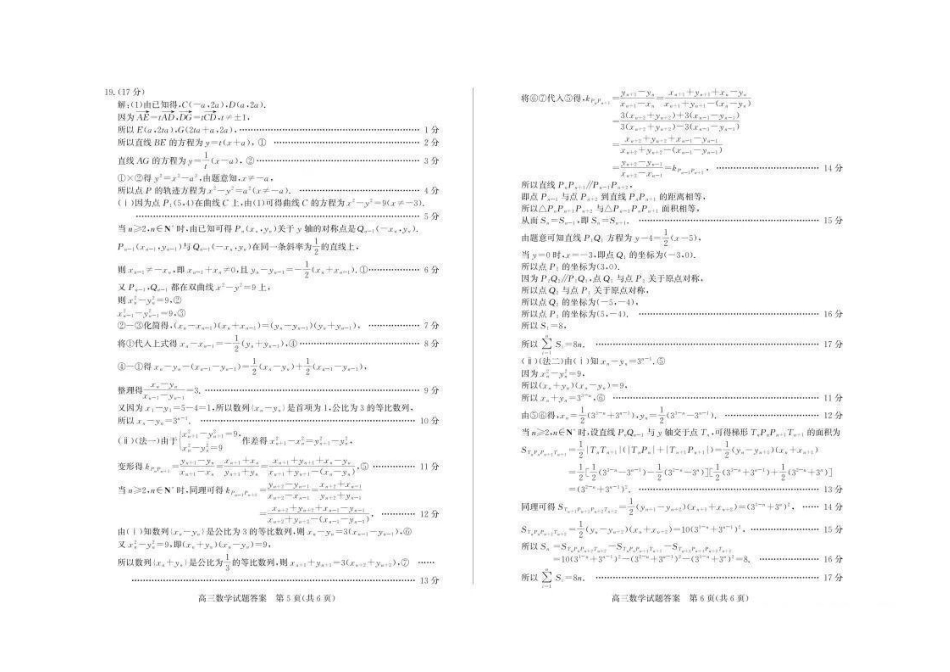 19.(17分)
解:(1)由已知得,C(-a,2a),D(a,2a).
因为AE=tAD,DG=tCD,t≠±1,
所以E(a,2ta),G(2ta+a,2a), 1分
所以直线BE的方程为y=t(x+a),① 2分
直线AG的方程为y=1/t(x-a),② 3分
①×②得y²=x²-a²,由题意知,x≠-a,
所以点P的轨迹方程为x²-y²=a²(x≠-a). 4分
(ⅰ)因为点P₁(5,4)在曲线C上,由(1)可得曲线C的方程为x²-y²=9(x≠-3).
5分
当n≥2,n∈N*时,由已知可得Pₙ(xₙ,yₙ)关于y轴的对称点是Qₙ₋₁(-xₙ,yₙ),
Pₙ₋₁(xₙ₋₁,yₙ₋₁)与Qₙ₋₁(-xₙ,yₙ)在同一条斜率为1/2的直线上,
则xₙ₋₁≠-xₙ,即xₙ₋₁+xₙ≠0,且yₙ-yₙ₋₁=-1/2(xₙ+xₙ₋₁).① 6分
又Pₙ₋₁,Qₙ₋₁都在双曲线x²-y²=9上,
则xₙ²-yₙ²=9,②
xₙ₋₁²-yₙ₋₁²=9,③
②-③化简得,(xₙ-xₙ₋₁)(xₙ+xₙ₋₁)=(yₙ-yₙ₋₁)(yₙ+yₙ₋₁), 7分
将①代入上式得xₙ-xₙ₋₁=-1/2(yₙ+yₙ₋₁),④ 8分
④-①得xₙ-yₙ-(xₙ₋₁-yₙ₋₁)=1/2(xₙ-yₙ)+1/2(xₙ₋₁-yₙ₋₁),
整理得(xₙ-yₙ)/(xₙ₋₁-yₙ₋₁)=3, 9分
又因为x₁-y₁=5-4=1,所以数列{xₙ-yₙ}是首项为1,公比为3的等比数列,
所以xₙ-yₙ=3ⁿ⁻¹. 10分
(ⅱ)(法一)由于{xₙ₊₁²-yₙ₊₁²=9, xₙ²-yₙ²=9 作差得xₙ₊₁²-xₙ²=yₙ₊₁²-yₙ²,
变形得k_{PₙPₙ₊₁}=(yₙ₊₁-yₙ)/(xₙ₊₁-xₙ)=(xₙ₊₁+xₙ)/(yₙ₊₁+yₙ)=(xₙ₊₁+yₙ₊₁+xₙ-yₙ)/(xₙ₊₁+yₙ₊₁-(xₙ-yₙ)),⑤ 11分
当n≥2,n∈N*时,同理可得k_{Pₙ₋₁Pₙ₊₂}=(yₙ₊₂-yₙ₋₁)/(xₙ₊₂-xₙ₋₁)=(xₙ₊₂+xₙ₋₁)/(yₙ₊₂+yₙ₋₁)
=(xₙ₊₂+yₙ₊₂+xₙ₋₁-yₙ₋₁)/(xₙ₊₂+yₙ₊₂-(xₙ₋₁-yₙ₋₁)), 12分
由(ⅰ)知数列{xₙ-yₙ}是公比为3的等比数列,则xₙ-yₙ=3(xₙ₋₁-yₙ₋₁),⑥
又xₙ²-yₙ²=9,即(xₙ+yₙ)(xₙ-yₙ)=9,
所以数列{xₙ+yₙ}是公比为1/3的等比数列,则xₙ₊₁+yₙ₊₁=3(xₙ₊₂+yₙ₊₂),⑦
13分
高三数学试题答案 第5页(共6页)
将⑥⑦代入⑤得,k_{PₙPₙ₊₁}=(yₙ₊₁-yₙ)/(xₙ₊₁-xₙ)=(xₙ₊₁+yₙ₊₁+xₙ-yₙ)/(xₙ₊₁+yₙ₊₁-(xₙ-yₙ))
=(3(xₙ₊₂+yₙ₊₂)+3(xₙ₋₁-yₙ₋₁))/(3(xₙ₊₂+yₙ₊₂)-3(xₙ₋₁-yₙ₋₁))
=(xₙ₊₂+yₙ₊₂+xₙ₋₁-yₙ₋₁)/(xₙ₊₂+yₙ₊₂-(xₙ₋₁-yₙ₋₁))
=(yₙ₊₂-yₙ₋₁)/(xₙ₊₂-xₙ₋₁)=k_{Pₙ₋₁Pₙ₊₂}, 14分
所以直线PₙPₙ₊₁//Pₙ₋₁Pₙ₊₂,
即点Pₙ₋₁与点Pₙ₊₂到直线PₙPₙ₊₁的距离相等,
所以△PₙPₙ₊₁Pₙ₊₂与△Pₙ₋₁PₙPₙ₊₁面积相等,
从而Sₙ=Sₙ₋₁,即Sₙ=Sₙ₋₁. 15分
由题意可知直线P₁Q₁方程为y-4=1/2(x-5),
当y=0时,x=-3,即点Q₁的坐标为(-3,0).
所以点P₂的坐标为(3,0).
因为P₂Q₂//P₁Q₁,点Q₁与点P₂关于原点对称,
所以点Q₂与点P₁关于原点对称,
所以点Q₂的坐标为(-5,-4),
所以点P₃的坐标为(5,-4). 16分
所以S₁=8,
所以∑ᵢ₌₁ⁿSᵢ=8n. 17分
(ⅱ)(法二)由(ⅰ)知xₙ-yₙ=3ⁿ⁻¹.⑤
因为xₙ²-yₙ²=9,
所以(xₙ+yₙ)(xₙ-yₙ)=9,
所以xₙ+yₙ=3³⁻ⁿ,⑥ 11分
由⑤⑥得,xₙ=1/2(3³⁻ⁿ+3ⁿ⁻¹),yₙ=1/2(3³⁻ⁿ-3ⁿ⁻¹). 12分
当n≥2,n∈N*时,设直线PₙQₙ₋₁与y轴交于点Tₙ,可得梯形TₙPₙPₙ₊₁Tₙ₊₁的面积为
S_{TₙPₙPₙ₊₁Tₙ₊₁}=1/2|TₙTₙ₊₁|(|TₙPₙ|+|Tₙ₊₁Pₙ₊₁|)=1/2(yₙ-yₙ₊₁)(xₙ+xₙ₊₁)
=1/2[1/2(3³⁻ⁿ-3ⁿ⁻¹)-1/2(3²⁻ⁿ-3ⁿ)][1/2(3³⁻ⁿ+3ⁿ⁻¹)+1/2(3²⁻ⁿ+3ⁿ)]
=(3²⁻ⁿ+3ⁿ⁻¹)². 13分
同理可得S_{Tₙ₊₁Pₙ₊₁Pₙ₊₂Tₙ₊₂}=1/2(yₙ₊₁-yₙ₊₂)(xₙ₊₁+xₙ₊₂)=(3¹⁻ⁿ+3ⁿ)², 14分
S_{TₙPₙPₙ₊₂Tₙ₊₂}=1/2(yₙ-yₙ₊₂)(xₙ+xₙ₊₂)=10(3¹⁻ⁿ+3ⁿ⁻¹)², 15分
所以Sₙ=S_{TₙPₙPₙ₊₂Tₙ₊₂}-S_{TₙPₙPₙ₊₁Tₙ₊₁}-S_{Tₙ₊₁Pₙ₊₁Pₙ₊₂Tₙ₊₂}
=10(3¹⁻ⁿ+3ⁿ⁻¹)²-(3²⁻ⁿ+3ⁿ⁻¹)²-(3¹⁻ⁿ+3ⁿ)²=8, 16分
所以∑ᵢ₌₁ⁿSᵢ=8n. 17分
高三数学试题答案 第6页(共6页)